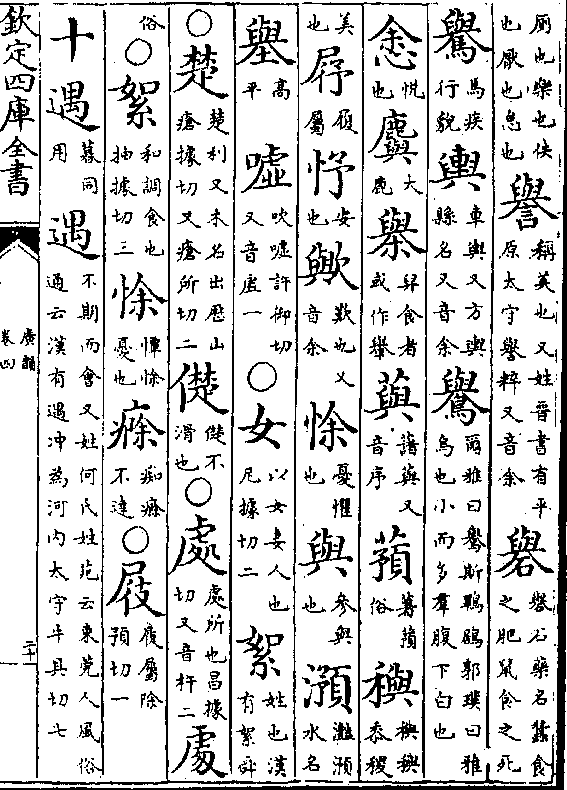 厠也樂也佚也厭也怠也 譽 稱美也又姓晉書有平原太守譽粹又音余 礜 礜石藥名蠶食之肥鼠食之死
䮷 馬疾行貌 輿 車輿又方輿縣名又音余 鸒 爾雅曰鸒斯鵯鶋郭璞曰雅烏也小而多羣腹下白也
悆 悅也 大鹿 舁食者或作轝 藇 藷藇又音序 蕷 薯蕷俗 穥 穥穥黍稷
美也 履屬 忬 安也 歟 歎也又音余 悇 憂懼也 與 參與也 澦 灩澦水名
高平 嘘 吹嘘許御切又音虚一 ○女 以女妻人也尼據切二 絮 姓也漢有絮舜
○楚 楚利又木名出歷山瘡據切又瘡所切二 儊 儊不滑也 ○處 處所也昌據切又音杵二 䖏
俗 ○絮 和調食也抽據切三 悇 憛悇憂也 㾻 痴㾻不達 ○屐 履屬除預切一
十遇 暮同用 遇 不期而會又姓何氏姓苑云東莞人風俗通云漢有遇冲為河内太守牛具切七
欽定四庫全書
廣韻
卷四
二十